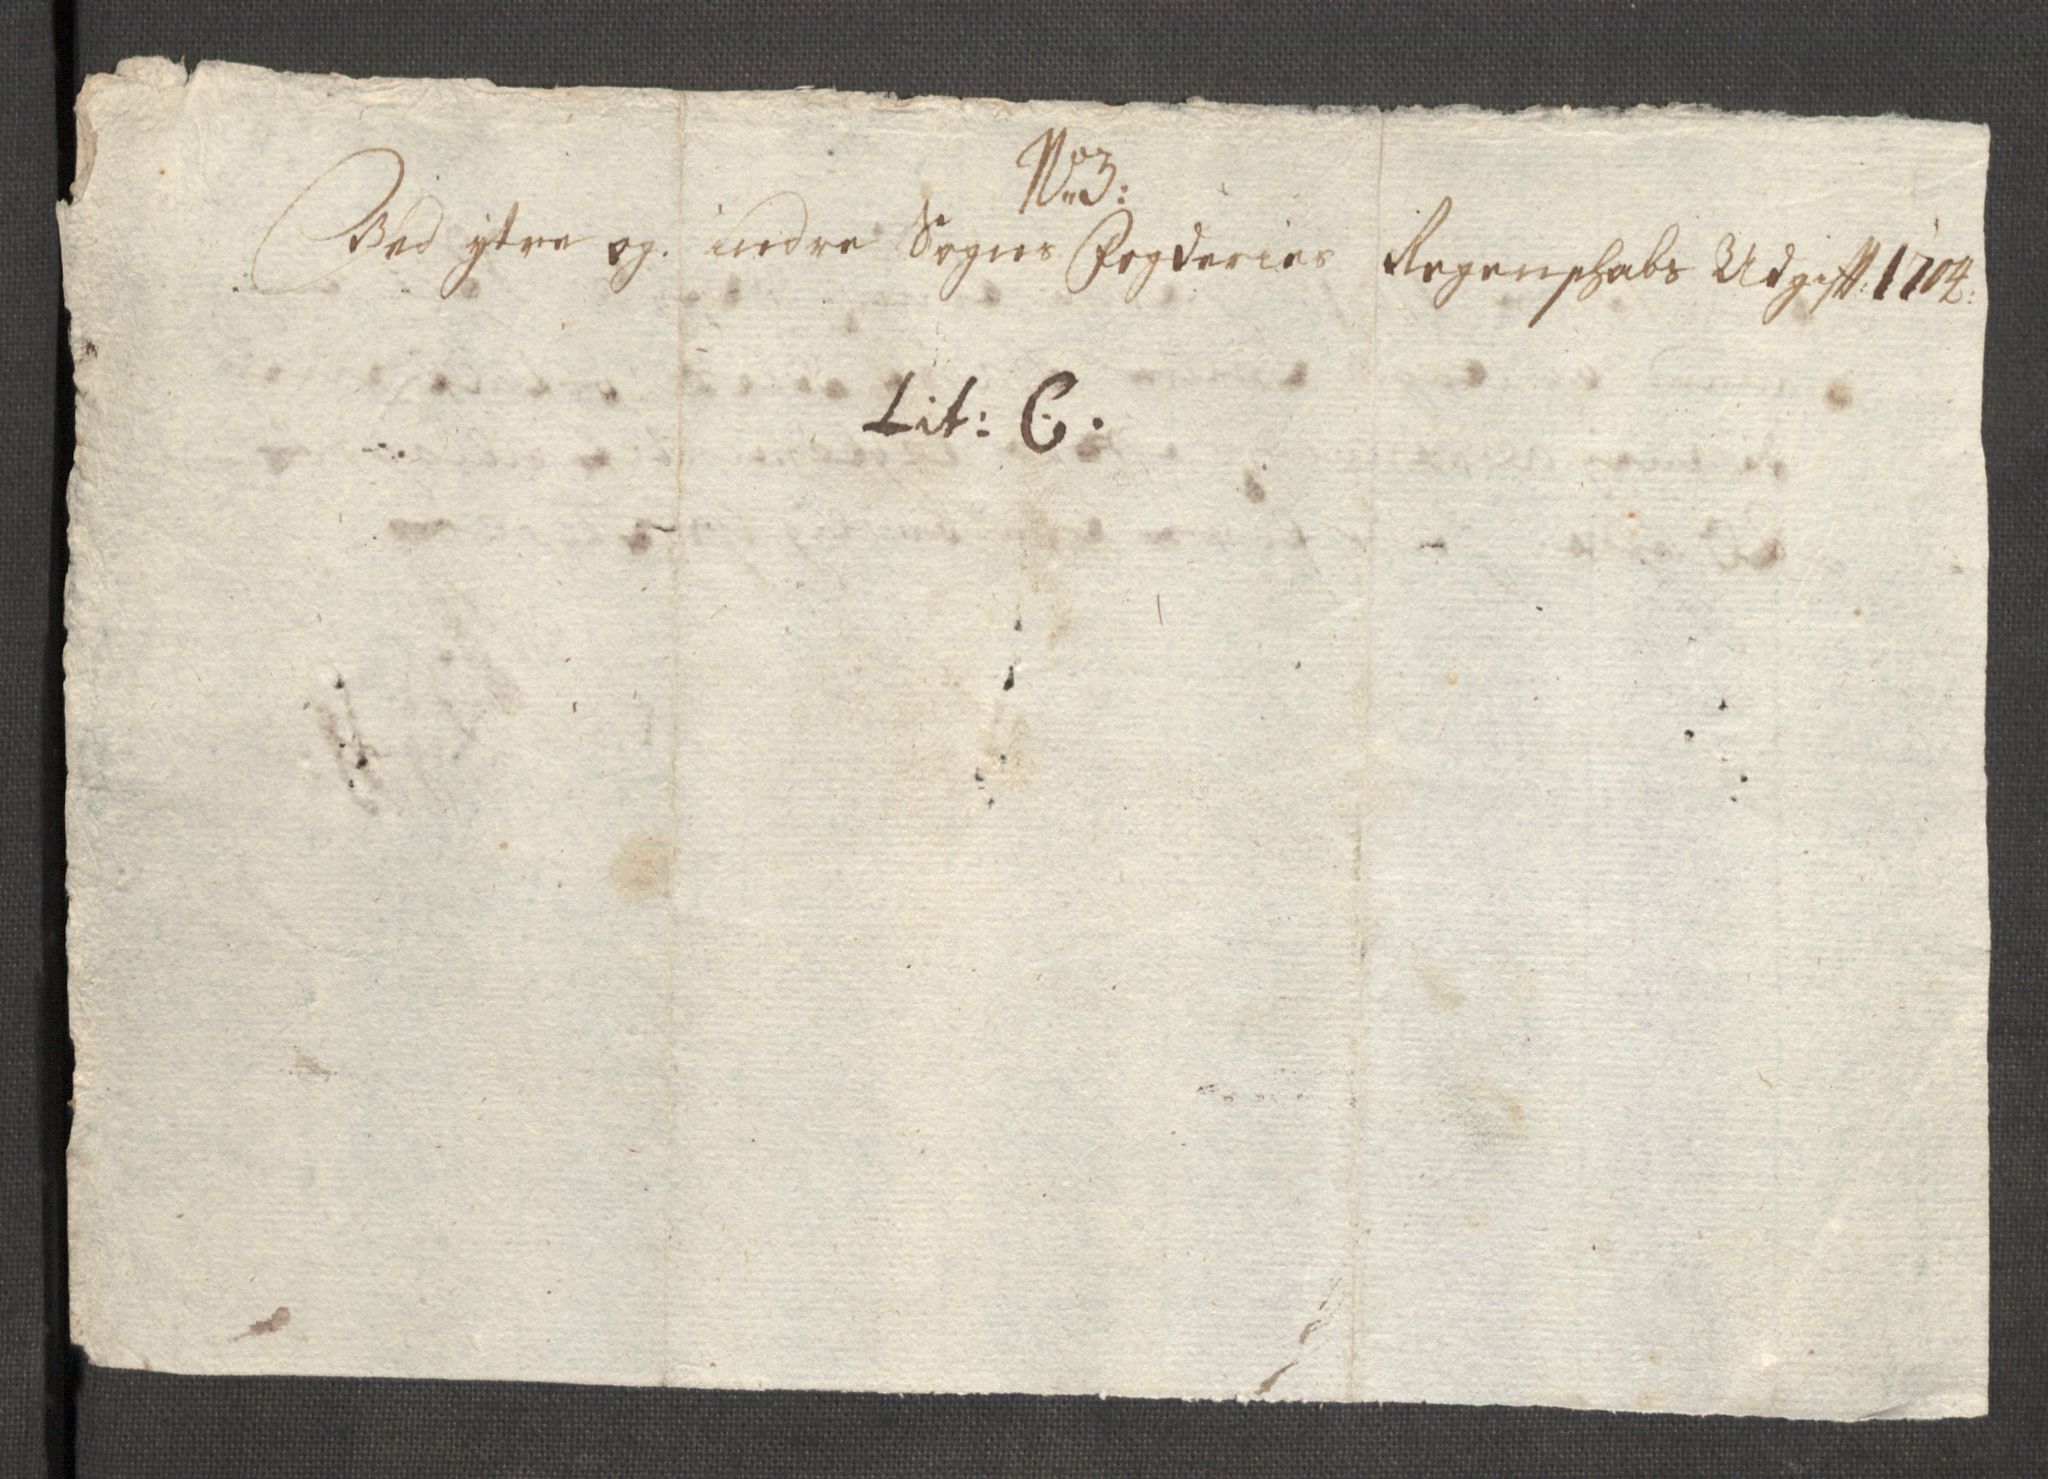 No 3:
Ved ytre og indre Sogns Fogderies Regenschabs Udgift: 1704:
Lit: C.